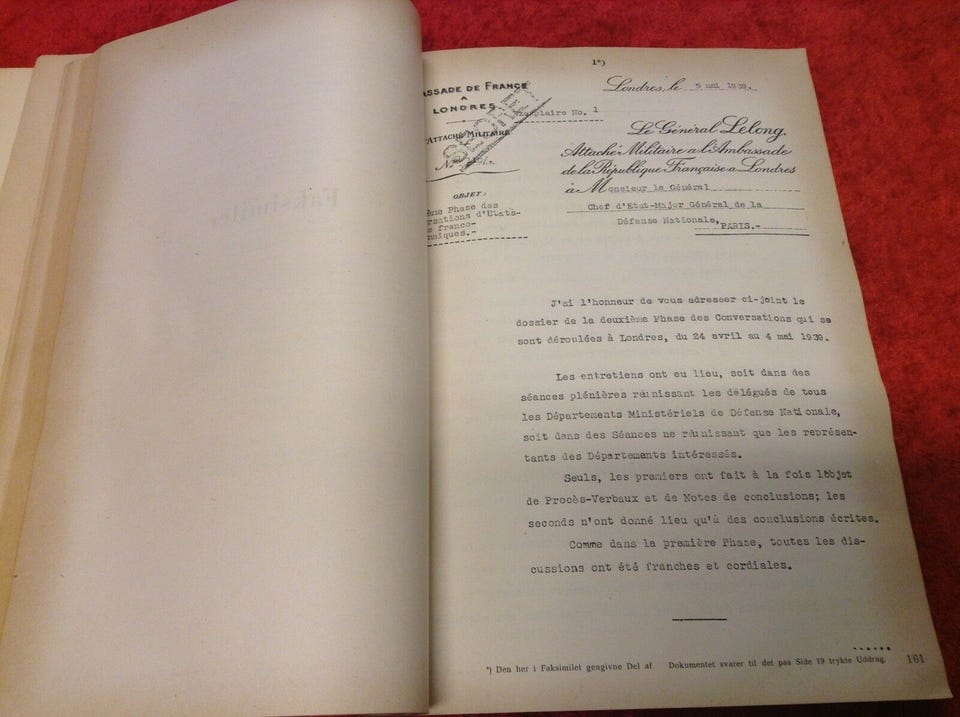 Faksimiler
1*)
ASSADE DE FRANCE
A
LONDRES
Exemplaire No. 1
SECRET
ATTACHÉ MILITAIRE
OBJET:
ème Phase des
rsations d'Etats-
franco-
niques.-
Londres, le 5 mai 1939.
Le Général Lelong
Attaché Militaire a l'Ambassade
de la République Française a Londres
à Monsieur le Général
Chef d'Etat-Major Général de la
Défense Nationale,
PARIS.-
J'ai l'honneur de vous adresser ci-joint le
dossier de la deuxième Phase des Conversations qui se
sont déroulées à Londres, du 24 avril au 4 mai 1939.
Les entretiens ont eu lieu, soit dans des
séances plénières réunissant les délégués de tous
les Départements Ministériels de Défense Nationale,
soit dans des Séances ne réunissant que les représen-
tants des Départements intéressés.
Seuls, les premiers ont fait à la fois l'objet
de Procès-Verbaux et de Notes de conclusions; les
seconds n'ont donné lieu qu'à des conclusions écrites.
Comme dans la première Phase, toutes les dis-
cussions ont été franches et cordiales.
*) Den her i Faksimilet gengivne Del af Dokumentet svarer til det paa Side 19 trykte Uddrag.
161